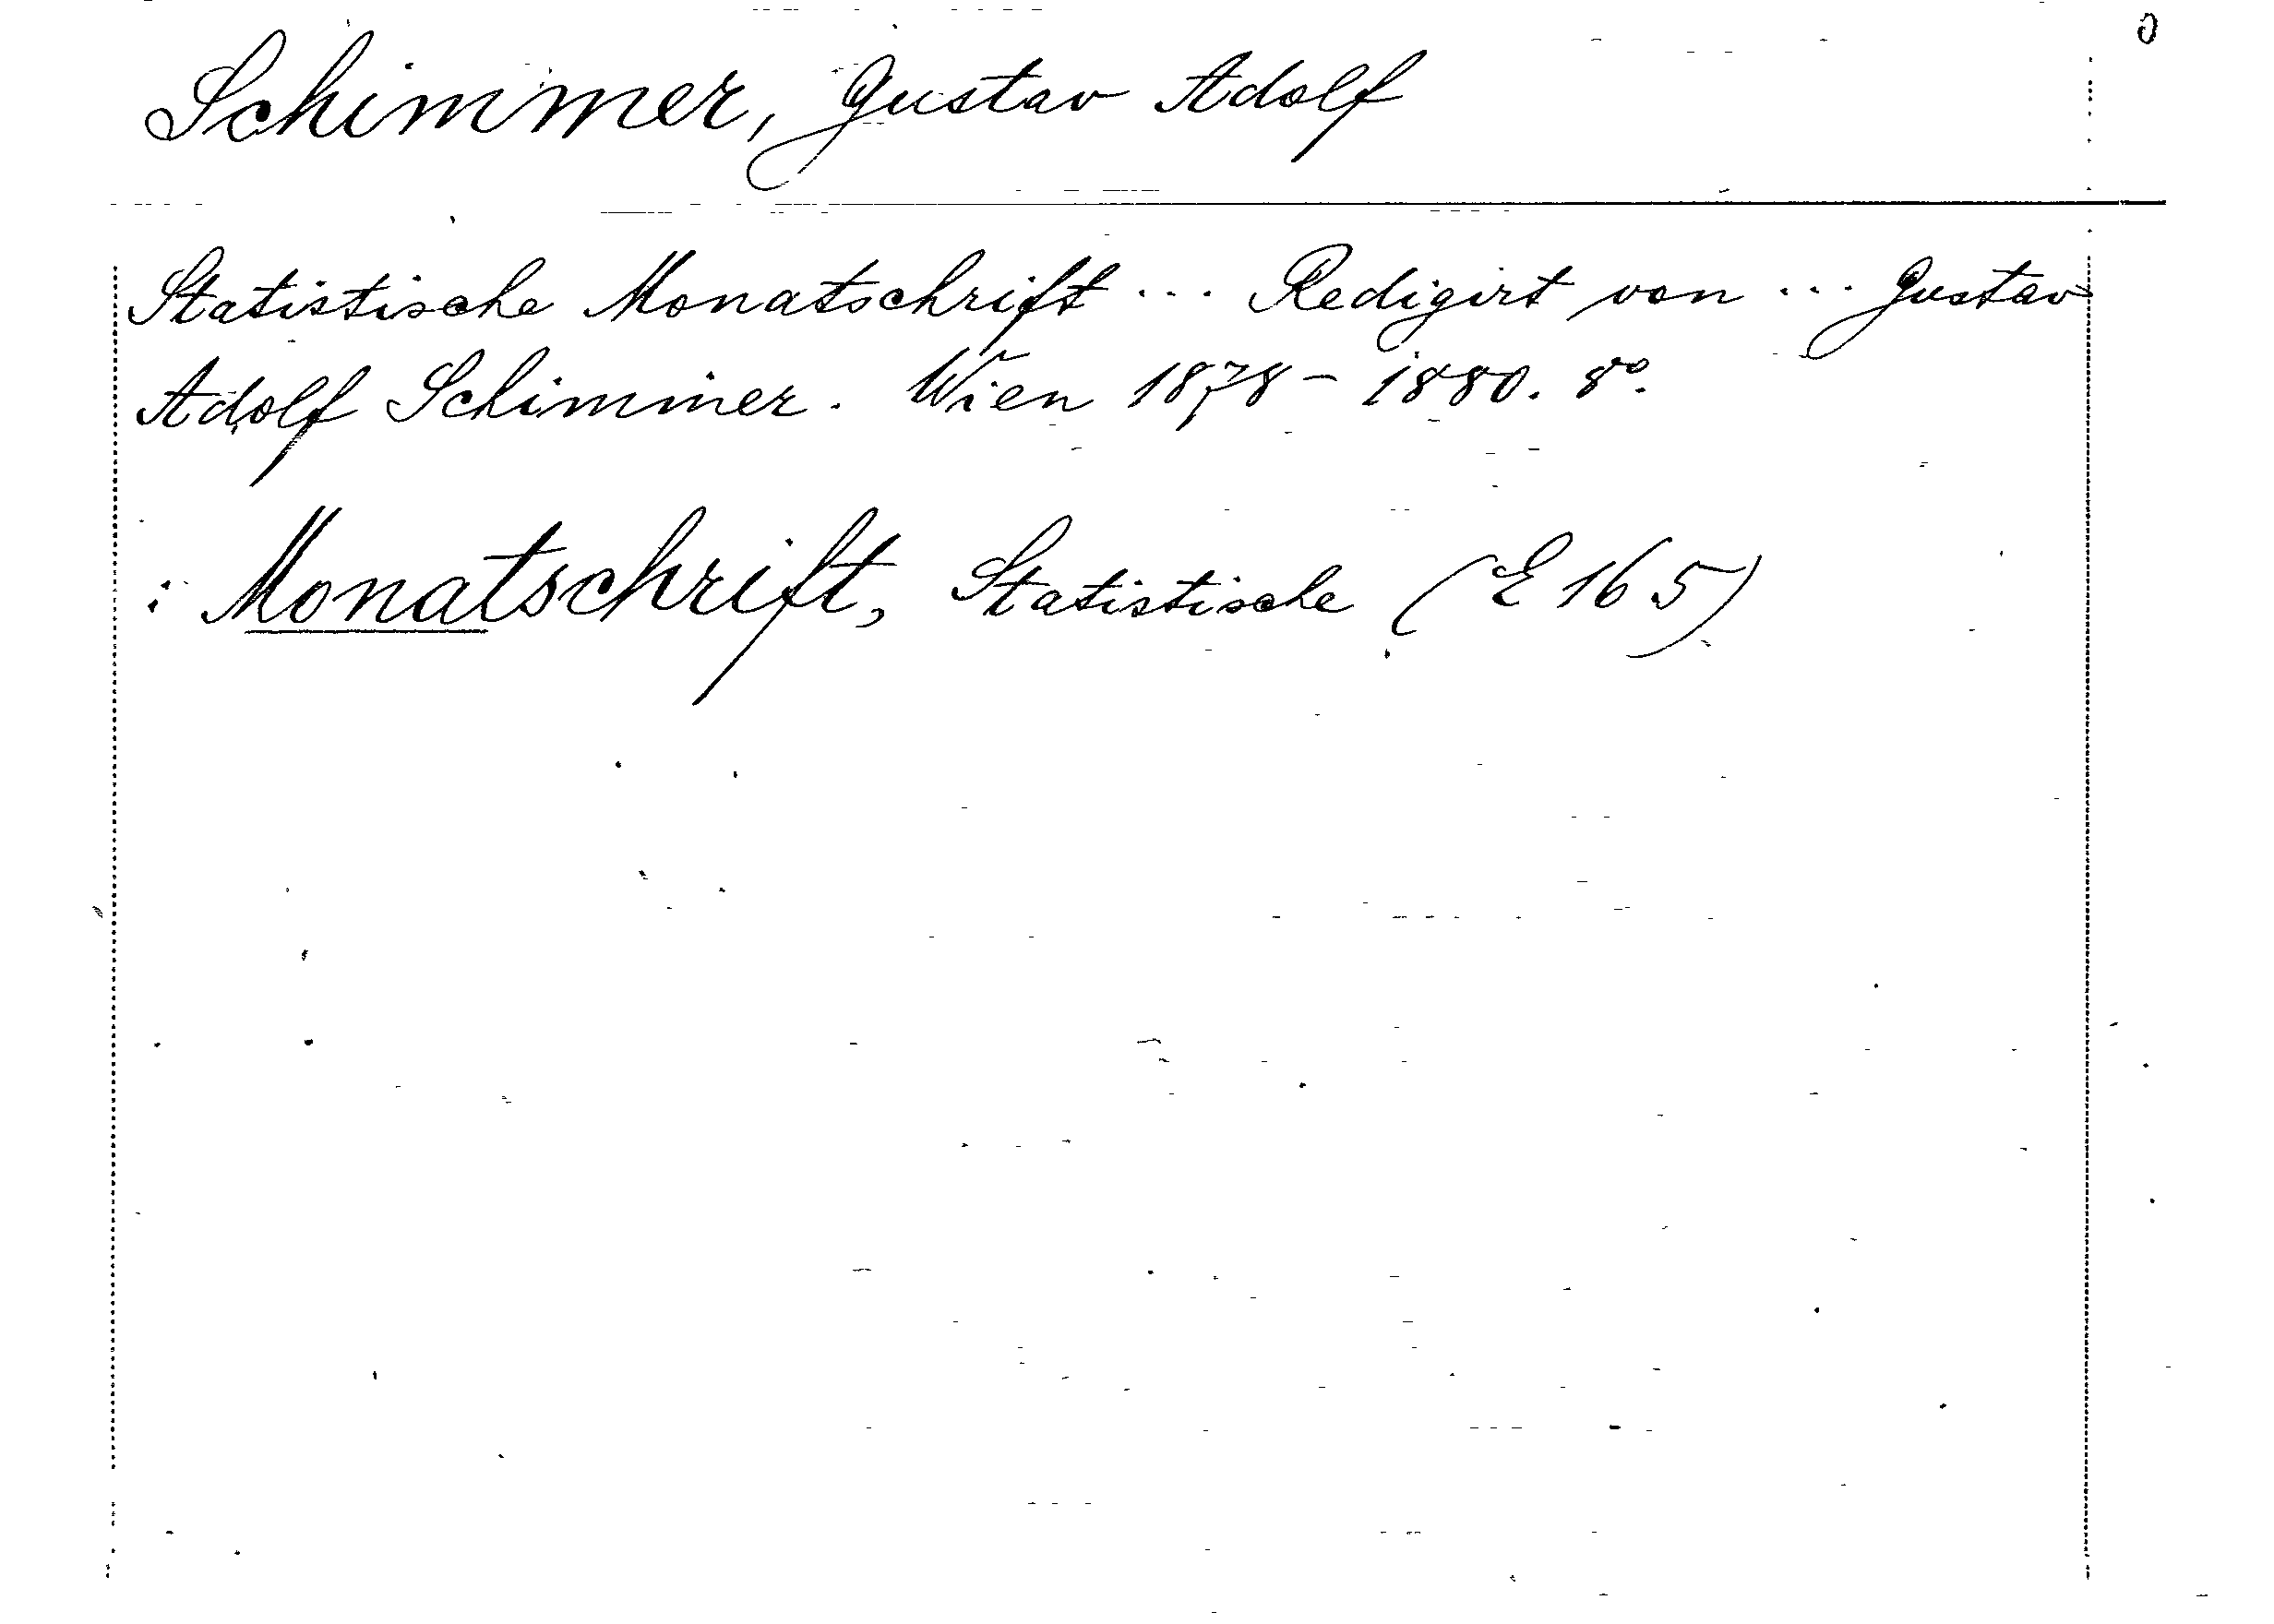 Schimmer, Gustav Adolf
Statistische Monatschrift ... Redigirt von ... Gustav
Adolf Schimmer. Wien 1878 - 1880. 8°.
: Monatschrift, Statistische (E 165)